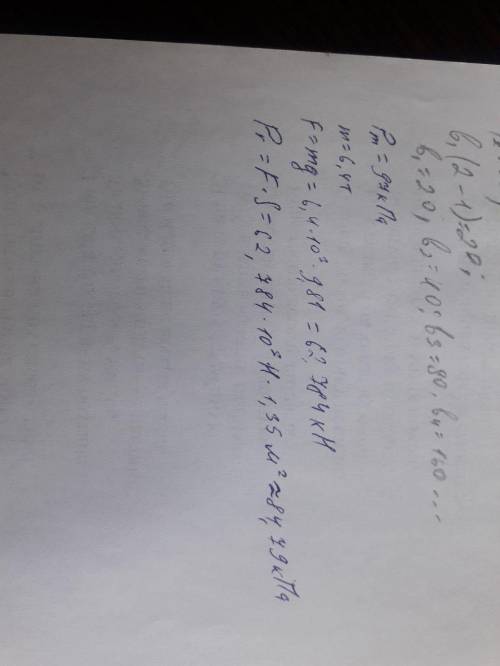 b₁(2-1)=20;
b₁=20, b₂=40; b₃=80. b₄=160...
Pₘ = 94кПа
m=6,4т
F=mg=6,4·10³·9,81=62,784кН
P₁=F·S=62,784·10³Н·1,35м²≈84,79кПа